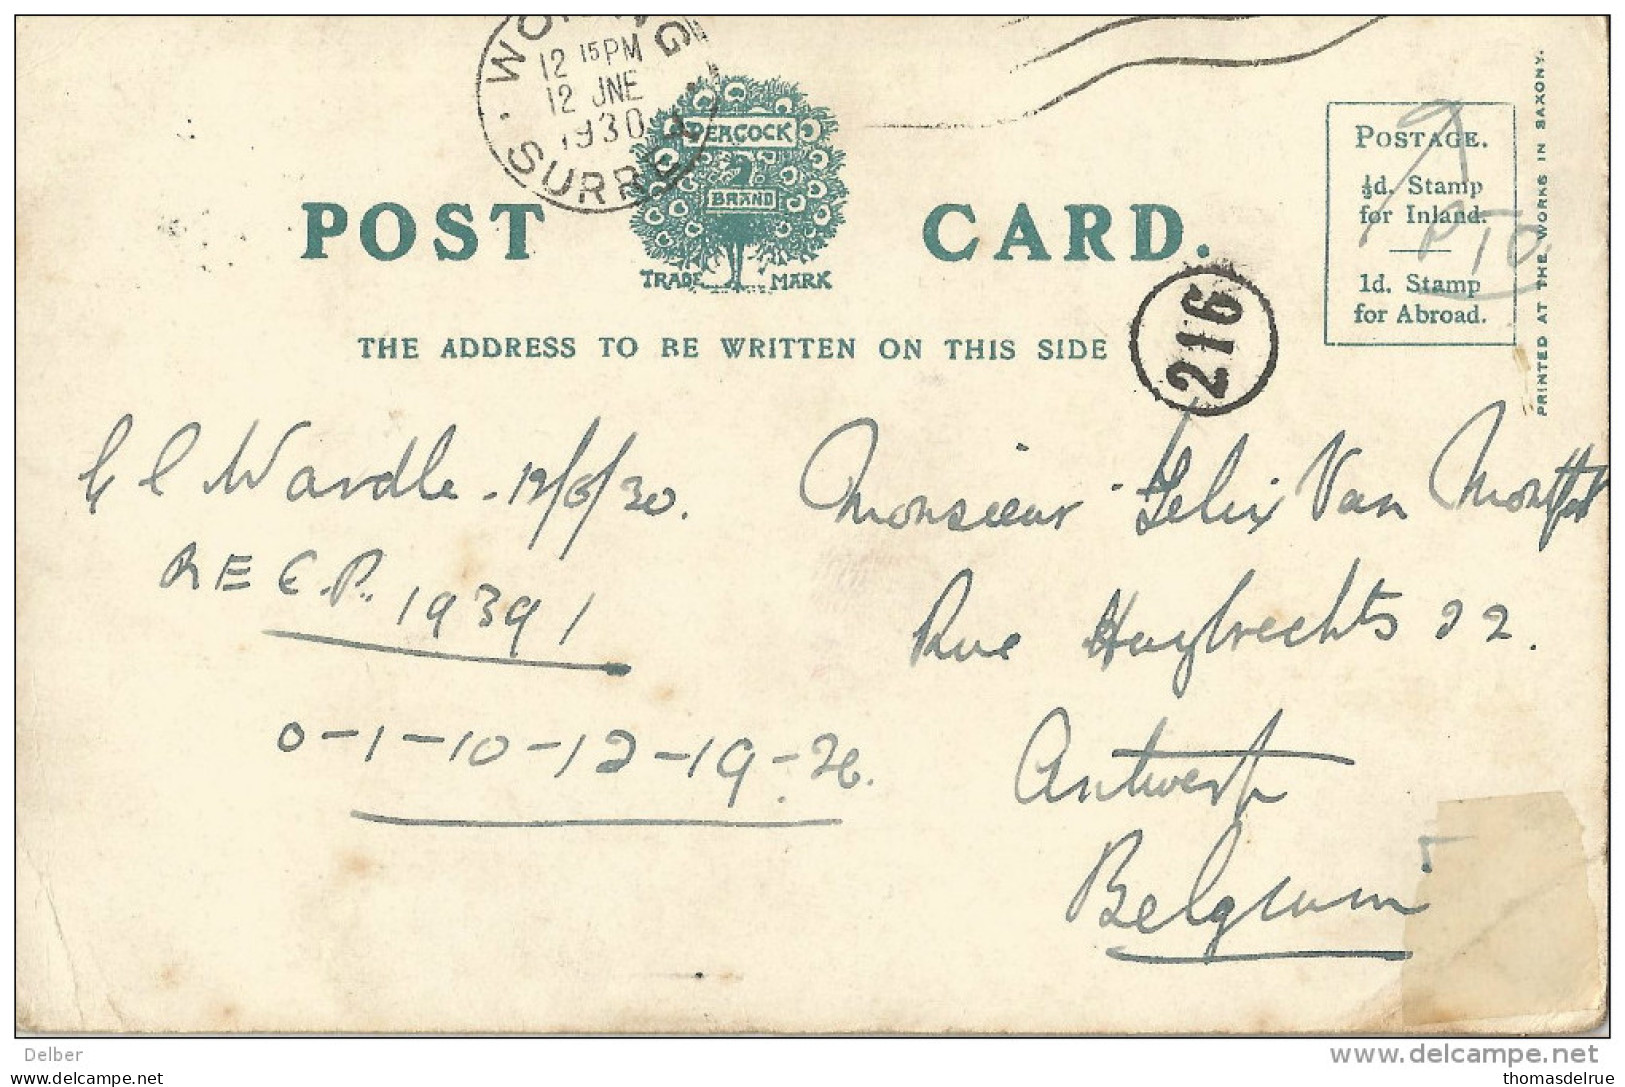 WOKING
12 15 PM
12 JNE
1930
SURREY
PEACOCK
BRAND
TRADE MARK
POST CARD.
THE ADDRESS TO BE WRITTEN ON THIS SIDE
216
POSTAGE.
½d. Stamp
for Inland.
1d. Stamp
for Abroad.
PRINTED AT THE WORKS IN SAXONY.
Wardle - 12/6/30.
19391
0-1-10-12-19-26.
Monsieur Felix Van Montfort
Rue Huybrechts 22.
Antwerp
Belgium
Delber
www.delcampe.net
thomasdelrue